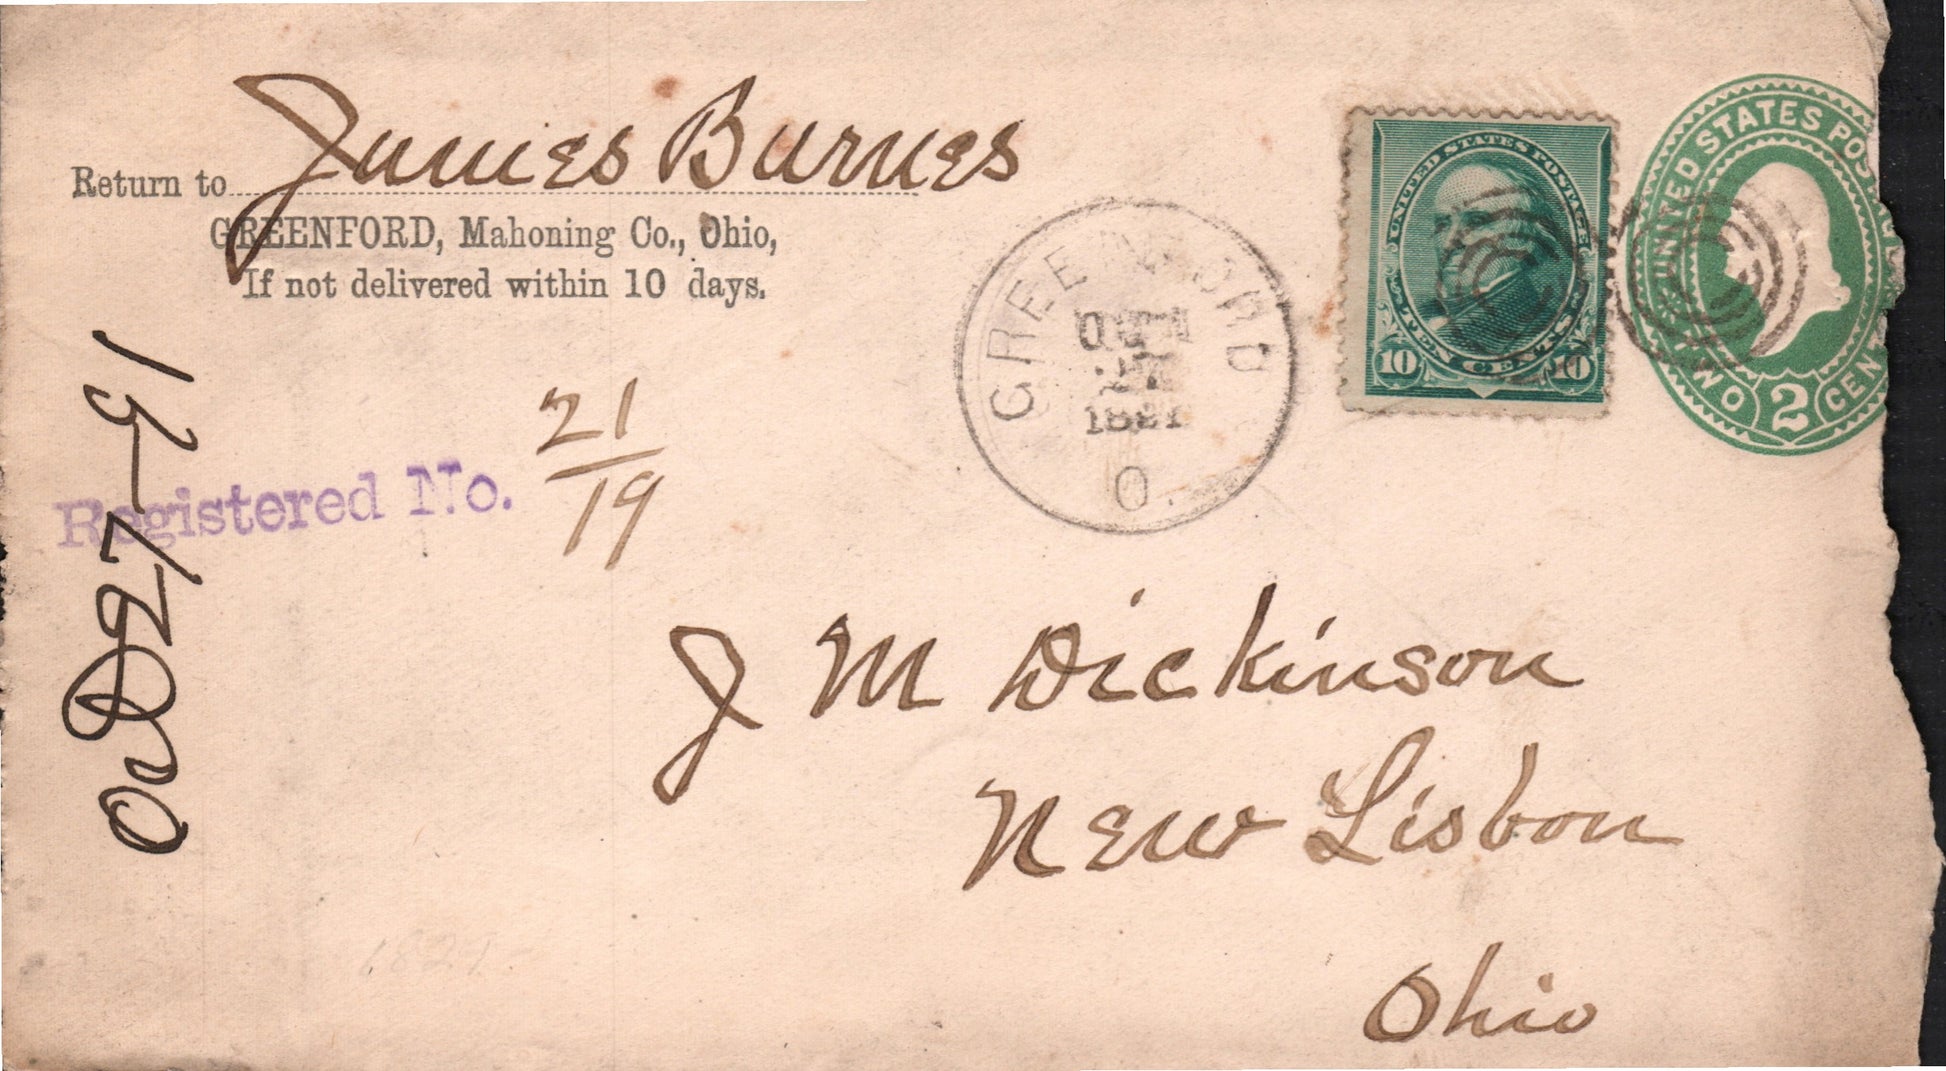 Return to James Burnes
GREENFORD, Mahoning Co., Ohio,
If not delivered within 10 days.
GREENFORD
27
1891
O.
UNITED STATES POSTAGE
10 TEN CENTS 10
UNITED STATES POSTAGE
TWO 2 CENT
Registered No. 21
19
27-91
J M Dickinson
New Lisbon
Ohio